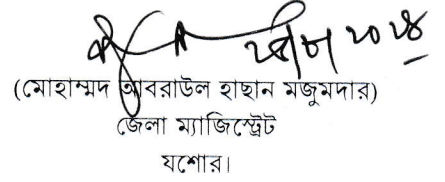 (মোহাম্মদ আবরাউল হাছান মজুমদার)
জেলা ম্যাজিস্ট্রেট
যশোর।